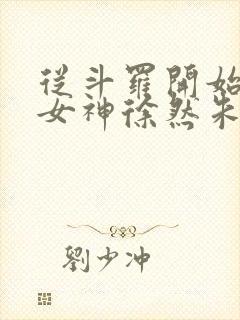 從斗羅開始
女神徐然朱
劉少冲